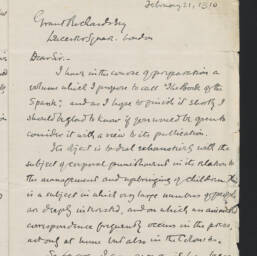 February 21, 1910
Grant Richards Esq
Leicester Square. London
Dear Sir.-
I have in the course of preparation a
volume which I propose to call "The Book of the
Spank", and as I hope to finish it shortly I
should be glad to know if you would be open to
consider it with a view to its publication.
Its object is to deal exhaustively with the
subject of corporal punishment in its relation to
the management and upbringing of children. This
is a subject in which very large numbers of people
are deeply interested, and on which an animated
correspondence frequently occurs in the press,
not only at home but also in the Colonies.